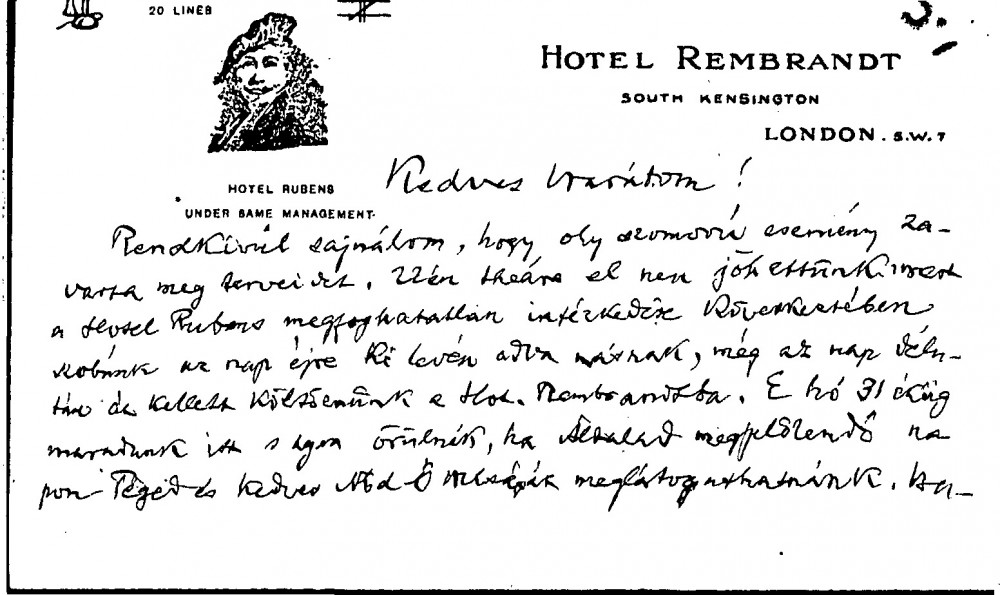 20 LINES
3.
HOTEL REMBRANDT
SOUTH KENSINGTON
LONDON. S.W. 7
HOTEL RUBENS
UNDER SAME MANAGEMENT.
Kedves Barátom!
Rendkívül sajnálom, hogy oly szomorú esemény za-
varta meg terveidet. theára el nem jöhettünk mert
a Hotel Rubens megfoghatatlan intézkedése következtében
szobánk az nap éjre ki levén adva másnak, még az nap délu-
tán át kellett költöznünk a Hot. Rembrandtba. E hó 31 éig
maradunk itt s igen örülnénk, ha Általad megjelölendő na
pon Téged és kedves Nőd Ő meglátogathatnánk.